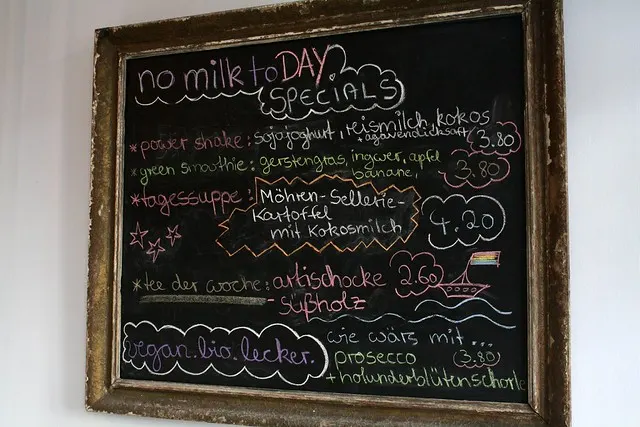 no milk toDAY
SPECiALS
*power shake: sojajoghurt, reismilch, kokos
+agavendicksaft 3.80
*green smoothie: gerstengras, ingwer, apfel
banane, 3.80
*tagessuppe: Möhren-Sellerie-
Kartoffel
mit Kokosmilch 4.20
*tee der woche: artischocke 2.60
-süßholz
vegan.bio.lecker.
wie wärs mit...
prosecco 3.80
+holunderblütenschorle